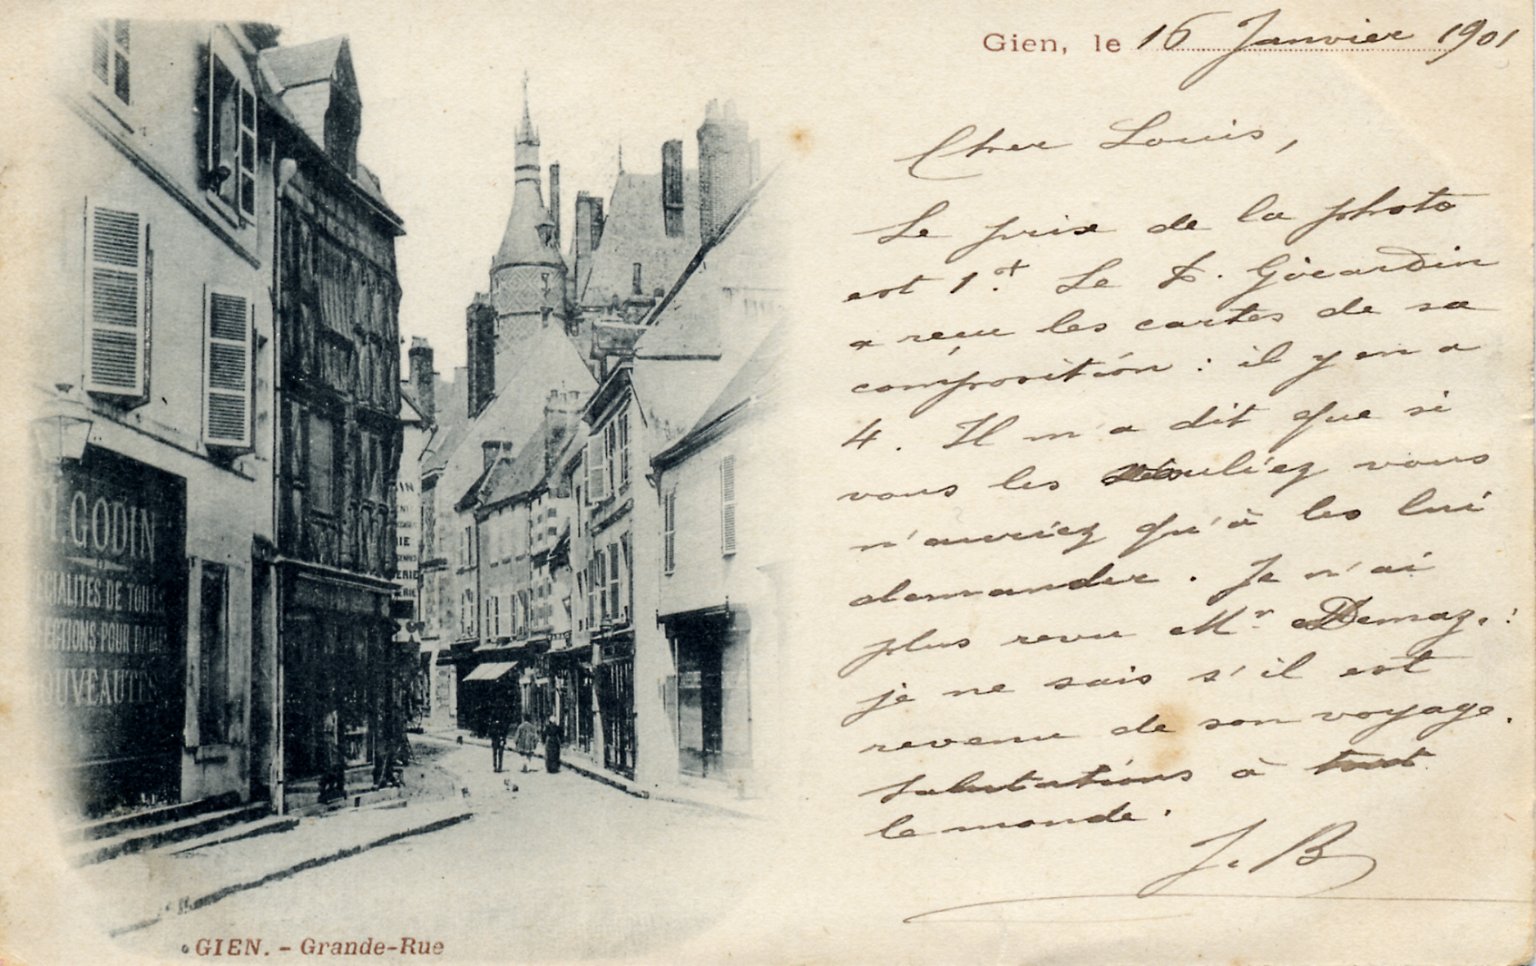 Gien, le 16 Janvier 1901
Cher Louis,
Le prix de la photo
est 1f. Le D. Girardin
a reçu les cartes de sa
composition : il y en a
4. Il m'a dit que si
vous les vouliez vous
n'auriez qu'à les lui
demander. Je n'ai
plus revu Mr Demaz. :
je ne sais s'il est
revenu de son voyage.
Salutations à tout
le monde.
J. B
GODIN
CIALITES DE TOILES
FECTIONS POUR DAMES
OUVEAUTÉS
IN
IE
ERIE
GIEN. - Grande-Rue